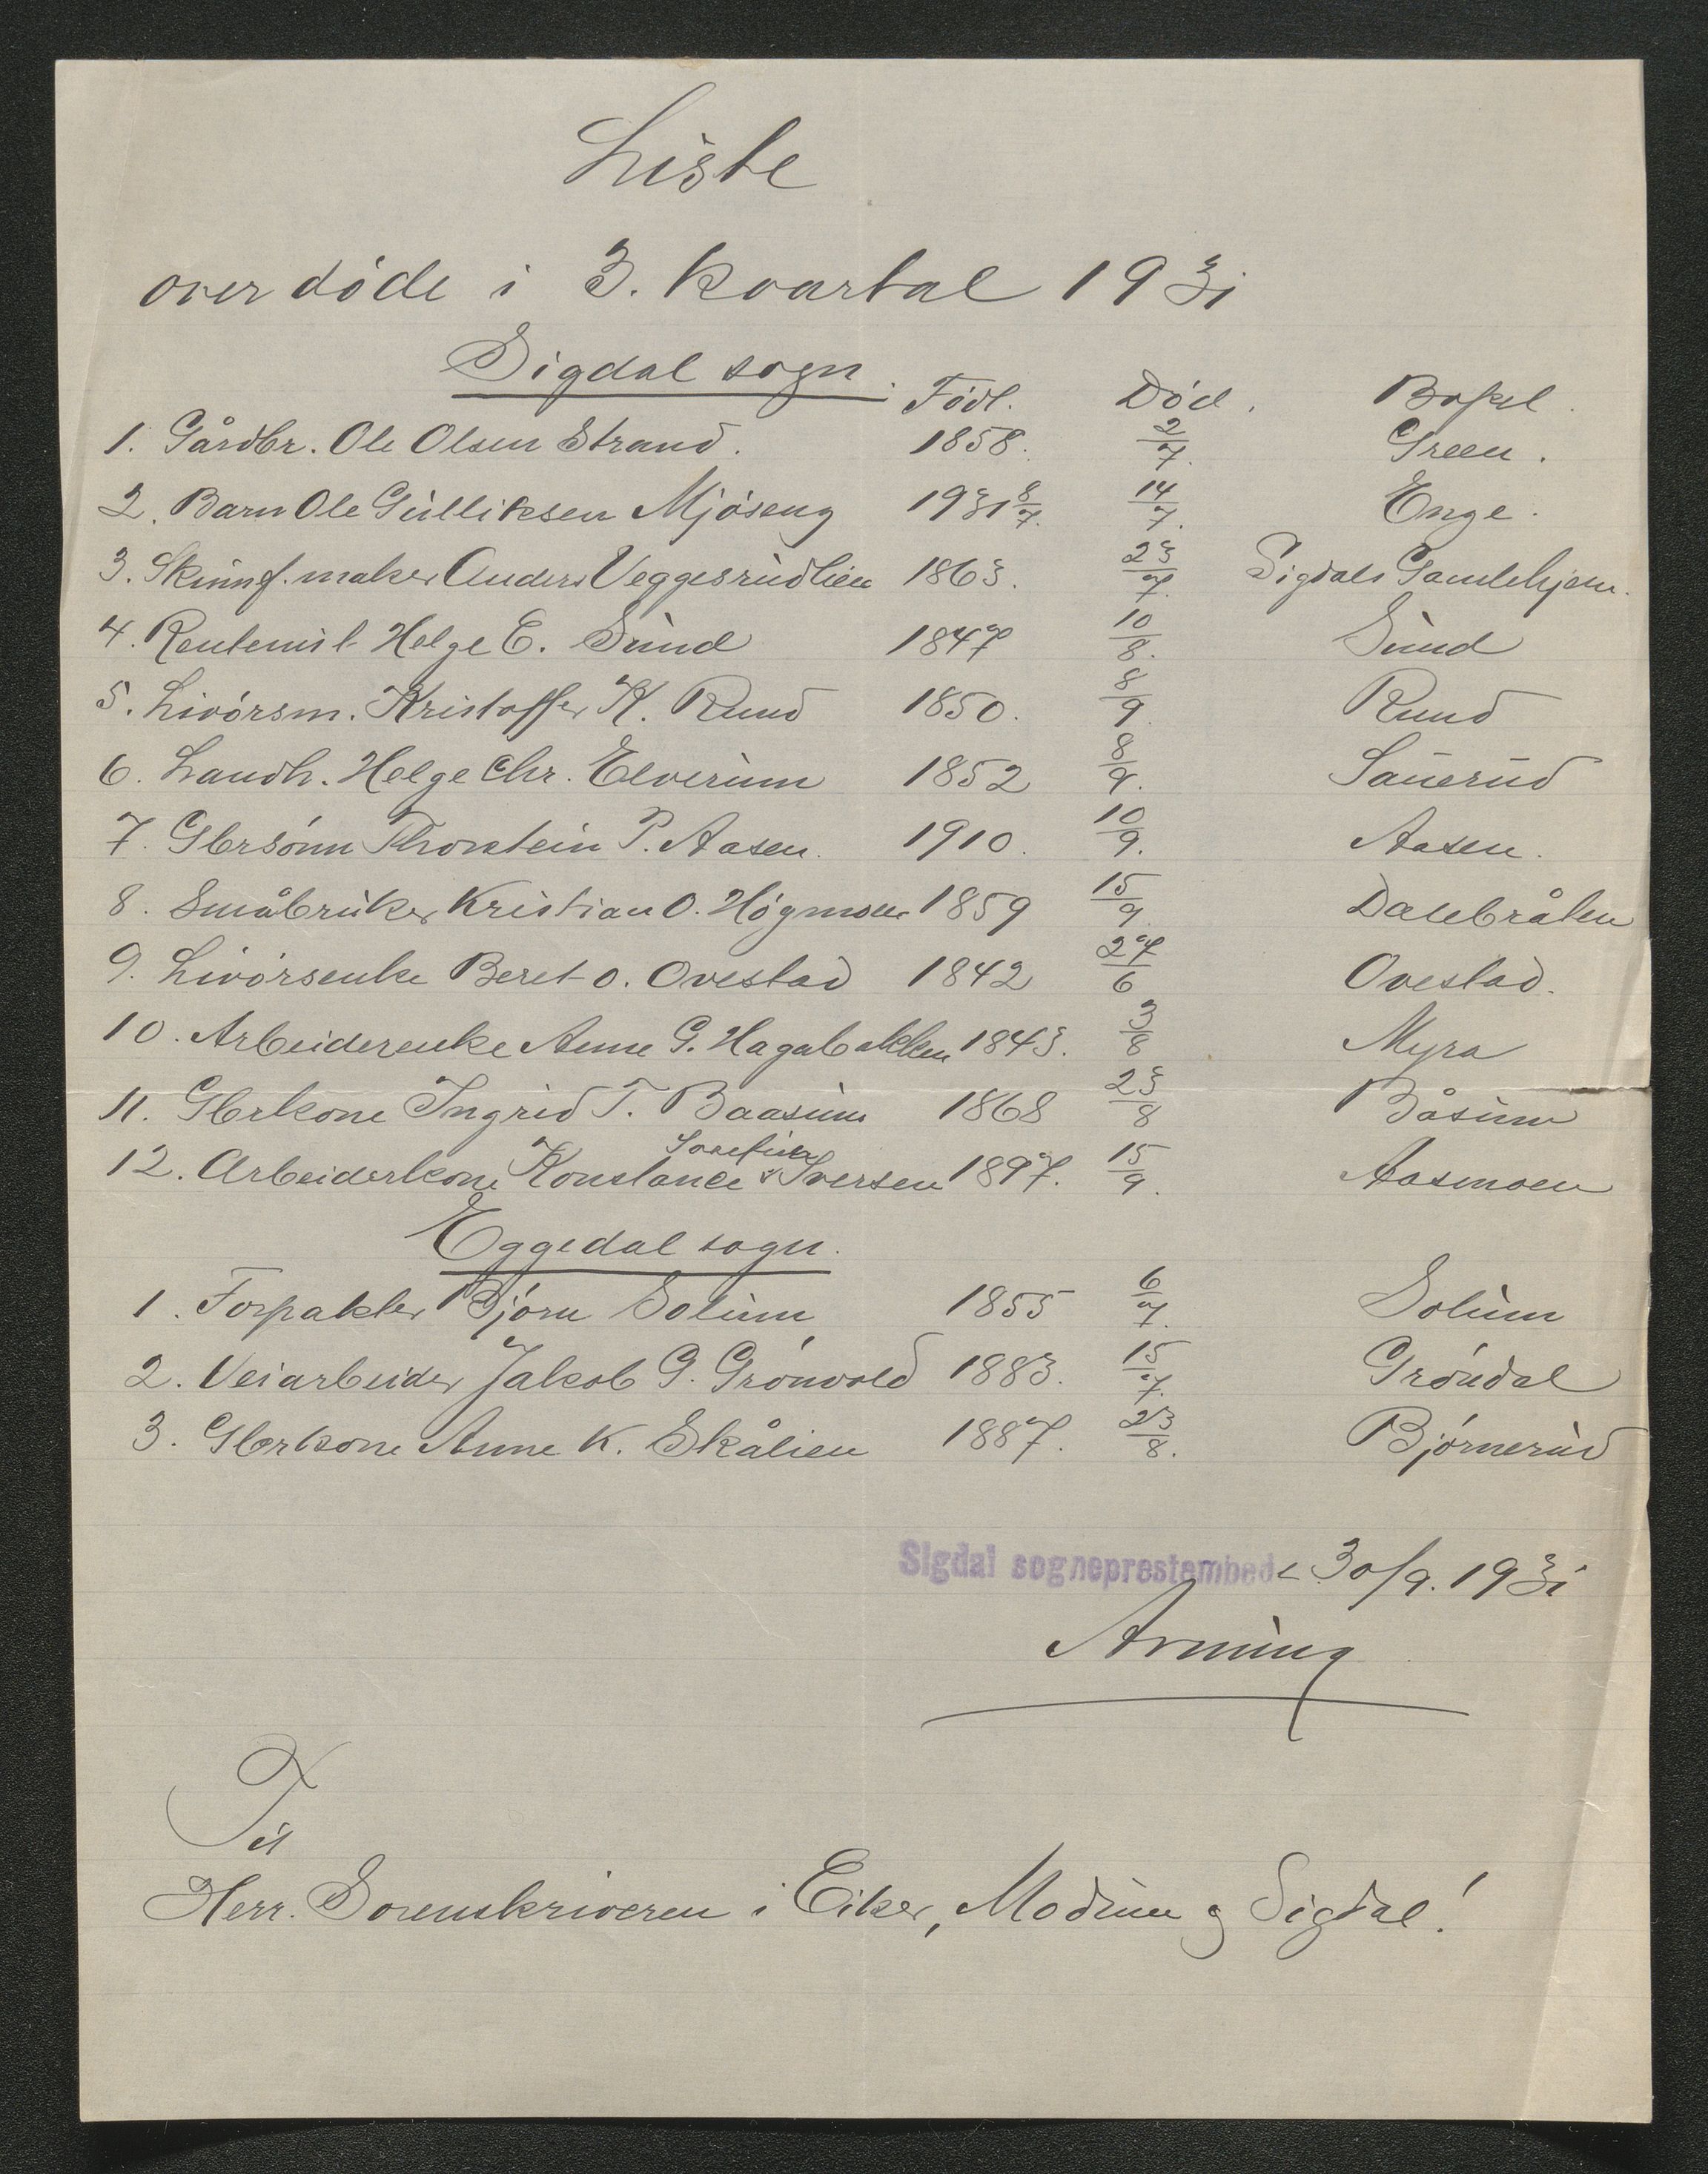 Liste
over døde i 3. kvartal 1931
Sigdal sogn. Født. Død. Bopel.
1. Gårdbr. Ole Olsen Strand. 1858. 2/7. Green.
2. Barn Ole Gulliksen Mjøseng 1931 8/7. 14/7. Enge.
3. Skinnf.maker Anders Veggesrudlien 1863. 23/7. Sigdals Gamlehjem.
4. Rentenist Helge E. Sund 1847 10/8. Sund
5. Livørsm. Kristoffer K. Ruud 1850. 8/9. Ruud
6. Landh. Helge Chr. Elverum 1852 8/9. Sauerud
7. Gbrsønn Thorstein P. Aasen. 1910. 10/9. Aasen.
8. Småbruker Kristian O. Høgmoen 1859 15/9. Dalebråten
9. Livørsenke Beret O. Ovestad 1842 27/6 Ovestad.
10. Arbeiderenke Anne G. Hagabakken 1843. 3/8 Myra
11. Gbrkone Ingrid T. Baasum 1868 23/8 Båsum
Josefine
12. Arbeiderkone Konstance Iversen 1897. 15/9. Aasmoen
Eggedal sogn.
1. Forpakter Bjørn Solum 1855 6/7. Solum
2. Veiarbeider Jakob G. Grønvold 1883. 15/7. Grøndal
3. Gbrkone Anne K. Skålien 1887. 23/8. Bjørnerud
Sigdal sogneprestembede 30/9. 1931
Til
Herr. Sorenskriveren i Eiker, Modum og Sigdal!